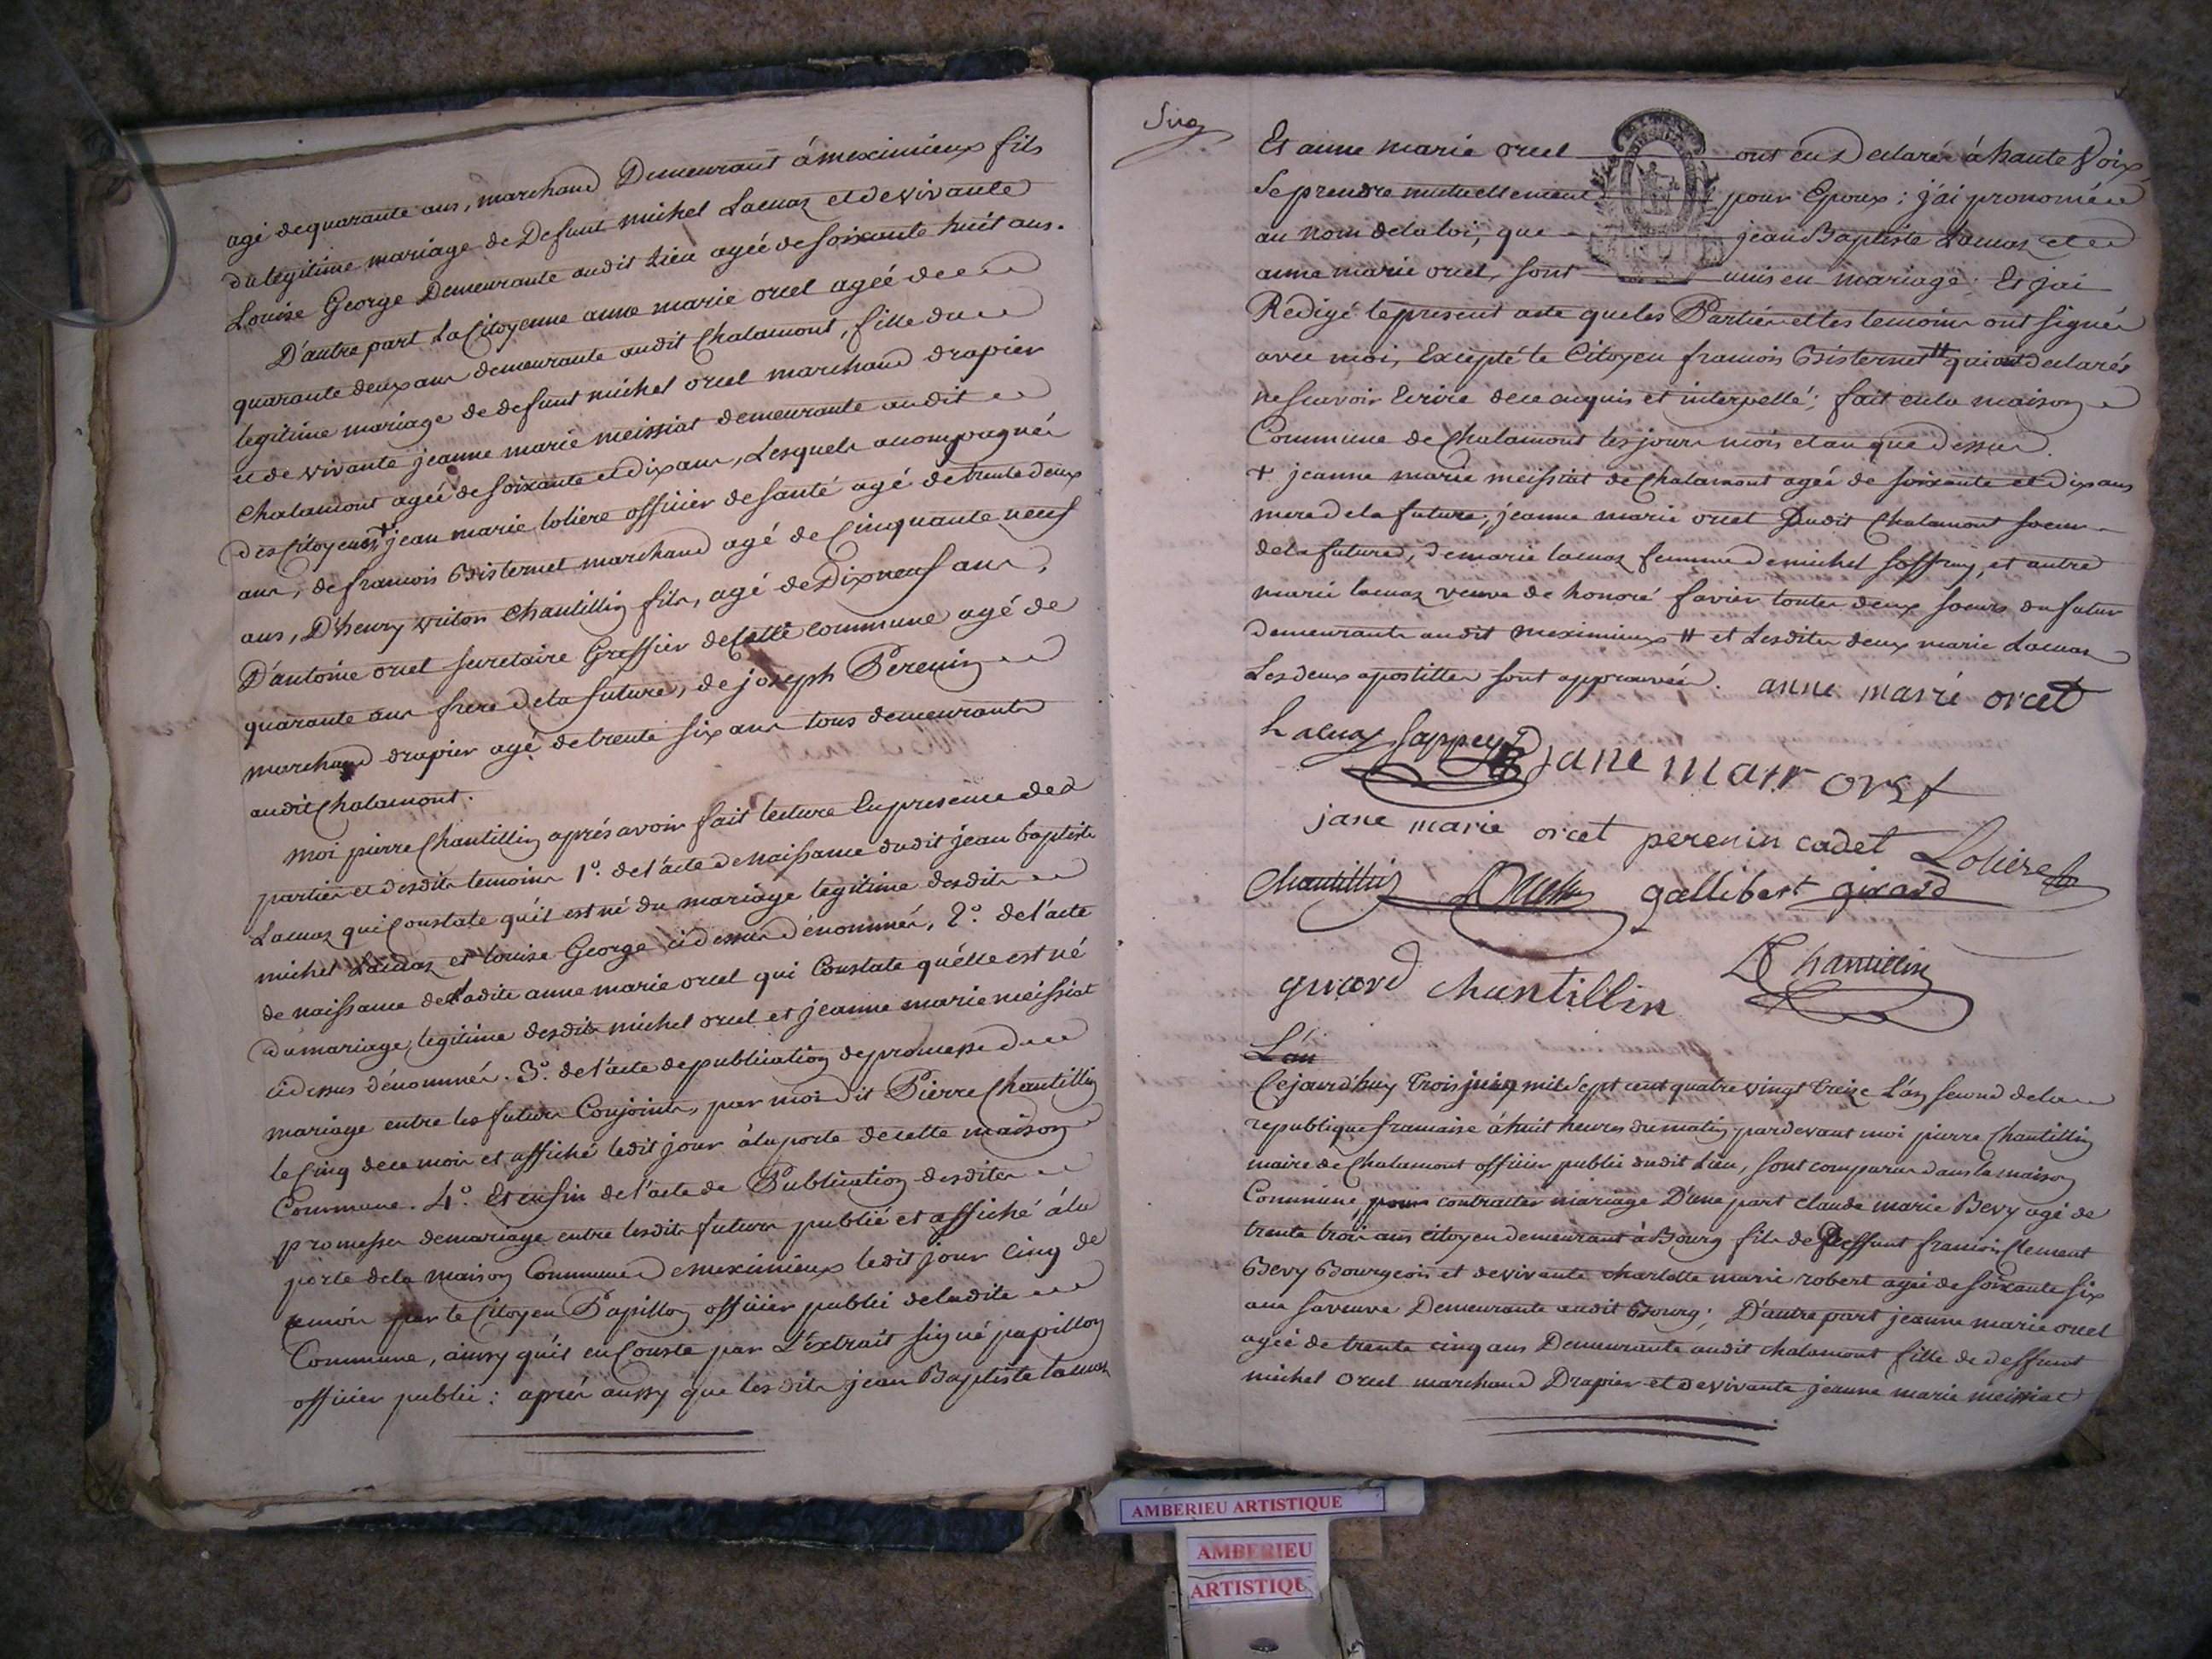 agé de quarante ans, marchand Demeurant à meximieux fils
du legitime mariage de Defunt michel Lacuaz et de vivante
Louise George Demeurante audit Lieu agée de soixante huit ans.
D'autre part La Citoyenne anne marie orcel agée de
quarante deux ans demeurante audit Chalamont, fille du
legitime mariage de defunt michel orcel marchand drapier
et de vivante jeanne marie meissiat demeurante audit
Chalamont agée de soixante et dix ans, Lesquels acompagnés
des Citoyens + jean marie loliere officier de santé agé de trente deux
ans, de francois Bisternet marchand agé de Cinquante neuf
ans, D'henry victor Chantillin fils, agé de Dix neuf ans,
D'antoine orcel secretaire Greffier de Cette commune agé de
quarante ans frere de la future, de joseph Perenin
marchand drapier agé de trente six ans tous demeurants
audit Chalamont.
moi pierre Chantillin aprés avoir fait lecture En presence des
parties et desdits temoins 1º. de l'acte de Naissance dudit jean baptiste
Lacuaz qui Constate qu'il est né du mariage legitime desdits
michel Lacuaz et louise George ci dessus dénommés, 2º. de l'acte
de naissance de Ladite anne marie orcel qui Constate qu'élle est né
du mariage legitime desdits michel orcel et jeanne marie meissiat
ci dessus dénommés. 3º. de l'acte de publication de promesse de
mariage entre les futurs Conjoints, par moi dit Pierre Chantillin
le Cinq de ce mois et affiché ledit jour à la porte de cette maison
Commune. 4º. Et enfin de l'acte de Publication desdites
promesses de mariage entre lesdits futurs publié et affiché à la
porte de la maison Commune de meximieux ledit jour cinq de
ce mois par le Citoyen Papillon officier public de ladite
Commune, ainsy qu'il en Conste par L'extrait signé papillon
officier public : aprés aussy que lesdits jean Baptiste Lacuaz
Et anne marie orcel ont eu Declaré à haute Voix
Se prendre mutuellement pour Epoux : j'ai prononcé
au nom de la loi, que jean Baptiste Lacuaz et
anne marie orcel, sont unis en mariage. Et j'ai
Rédigé le present acte que les Parties et les temoins ont signés
avec moi, Excepté le Citoyen francois Bisternet # qui ont declarés
ne scavoir Ecrire de ce enquis et interpellé ; fait en la maison
Commune de Chalamont les jours mois et an que dessus.
+ jeanne marie meissiat de Chalamont agée de soixante et dix ans
mere de la future, jeanne marie orcel Dudit Chalamont soeur
de la future, de marie lacuaz femme de michel et autre
marie lacuaz veuve de honoré favier toutes deux soeurs du futur
demeurante audit meximieux # et Lesdites deux marie Lacuaz
Les deux apostilles sont approuvées. anne marie orcet
Lacuaz Sappey jane mari orset
jane marie orcet perenin cadet Loliere
Chantillin Orcel gallibert girard
girard chantillin Chantillin
L'an
Cejourd'huy trois juin mil Sept cent quatre vingt treize L'an second de la
republique francaise à huit heures du matin pardevant moi pierre Chantillin
maire de Chalamont officier public dudit Lieu, sont comparus dans la maison
Commune, pour contracter mariage D'une part claude marie Bevy agé de
trente trois ans citoyen demeurant à Bourg fils de deffunt francois Clement
Bevy Bourgeois et de vivante charlotte marie robert agée de soixante six
ans sa veuve Demeurante audit Bourg ; D'autre part jeanne marie orcel
agée de trente cinq ans Demeurante audit chalamont fille de deffunt
michel orcel marchand Drapier et de vivante jeanne marie meissiat
AMBERIEU ARTISTIQUE
AMBERIEU
ARTISTIQUE